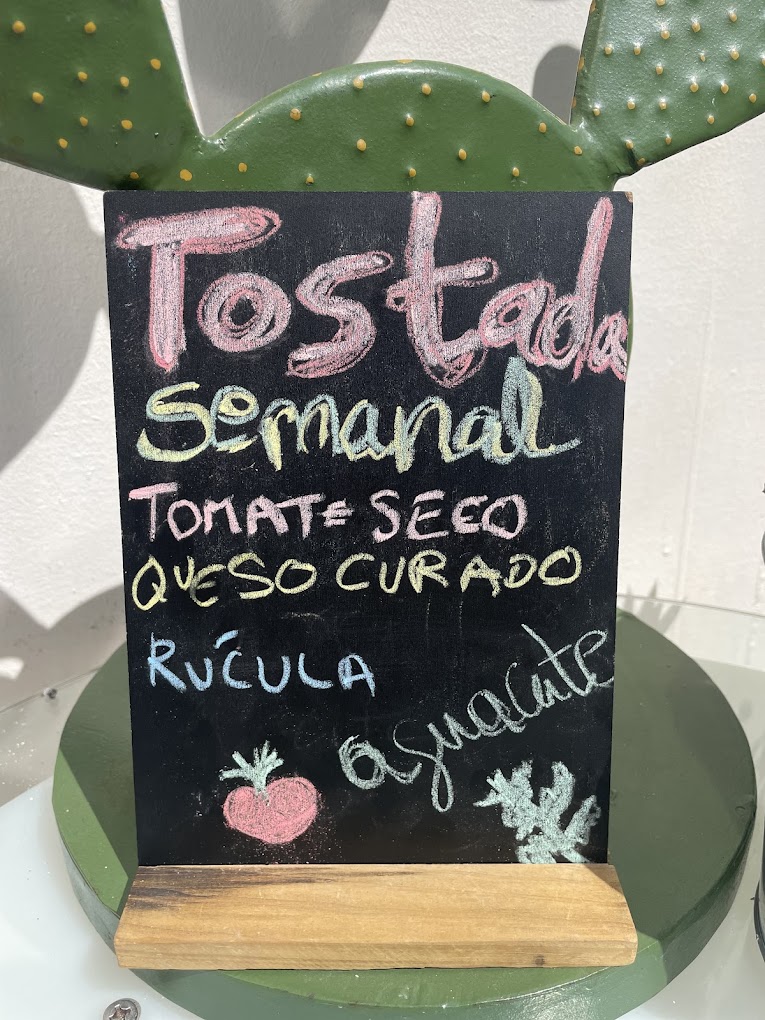 Tostada
semanal
TOMATE SECO
QUESO CURADO
RÚCULA
aguacate